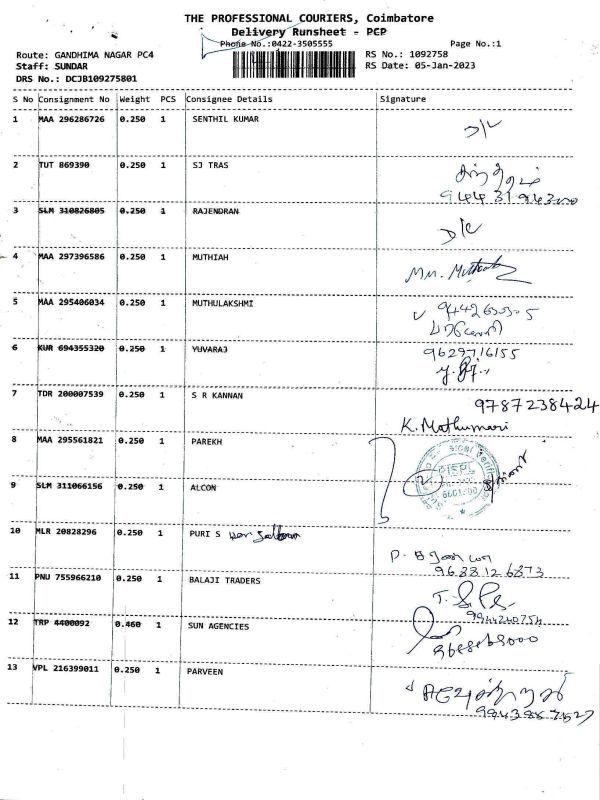 THE PROFESSIONAL COURIERS, Coimbatore
Delivery Runsheet - PCP
Phone No.:0422-3505555 Page No.:1
Route: GANDHIMA NAGAR PC4 RS No.: 1092758
Staff: SUNDAR RS Date: 05-Jan-2023
DRS No.: DCJB109275801
S No Consignment No Weight PCS Consignee Details Signature
1 MAA 296286726 0.250 1 SENTHIL KUMAR D/C
2 TUT 869390 0.250 1 SJ TRAS
3 SLM 310826805 0.250 1 RAJENDRAN D/C
4 MAA 297396586 0.250 1 MUTHIAH Mu. Muthiah
5 MAA 295406034 0.250 1 MUTHULAKSHMI
6 KUR 694355320 0.250 1 YUVARAJ 9629716155
7 TDR 200007539 0.250 1 S R KANNAN 9787238424
K. Mathumari
8 MAA 295561821 0.250 1 PAREKH
9 SLM 311066156 0.250 1 ALCON
10 MLR 20828296 0.250 1 PURI S
9688126873
11 PNU 755966210 0.250 1 BALAJI TRADERS
9944240754
12 TRP 4400092 0.460 1 SUN AGENCIES
13 VPL 216399011 0.250 1 PARVEEN